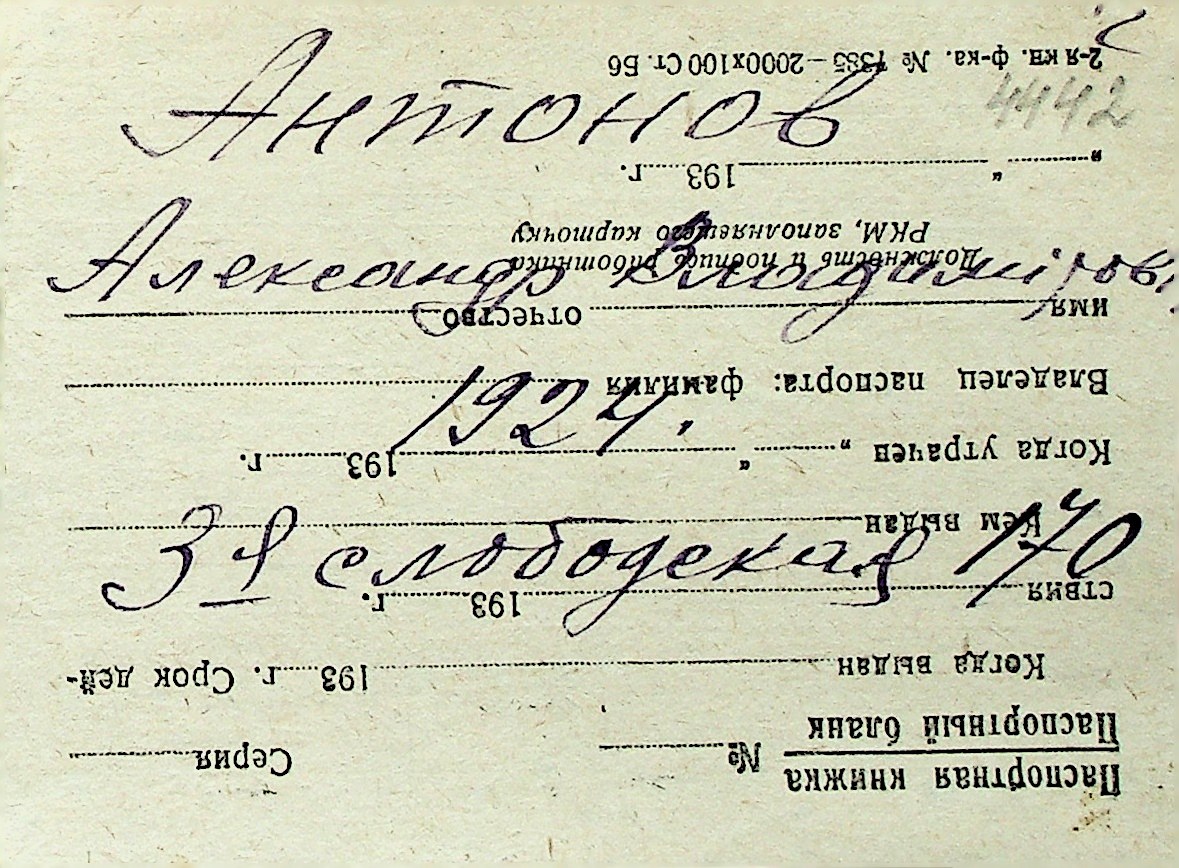 Антонов
4442
Александр Владимиров
1924.
3я слободская 170
Паспортная книжка
Паспортный бланк
№ Серия
Когда выдан 193 г. Срок дей-
ствия 193 г.
Кем выдан
Когда утрачен „ “ 193 г.
Владелец паспорта: фамилия
имя отчество
Должность и подпись работника
РКМ, заполняещего карточку
„ “ 193 г.
2-я кн. ф-ка. № 7385 — 2000х100 Ст. Б6